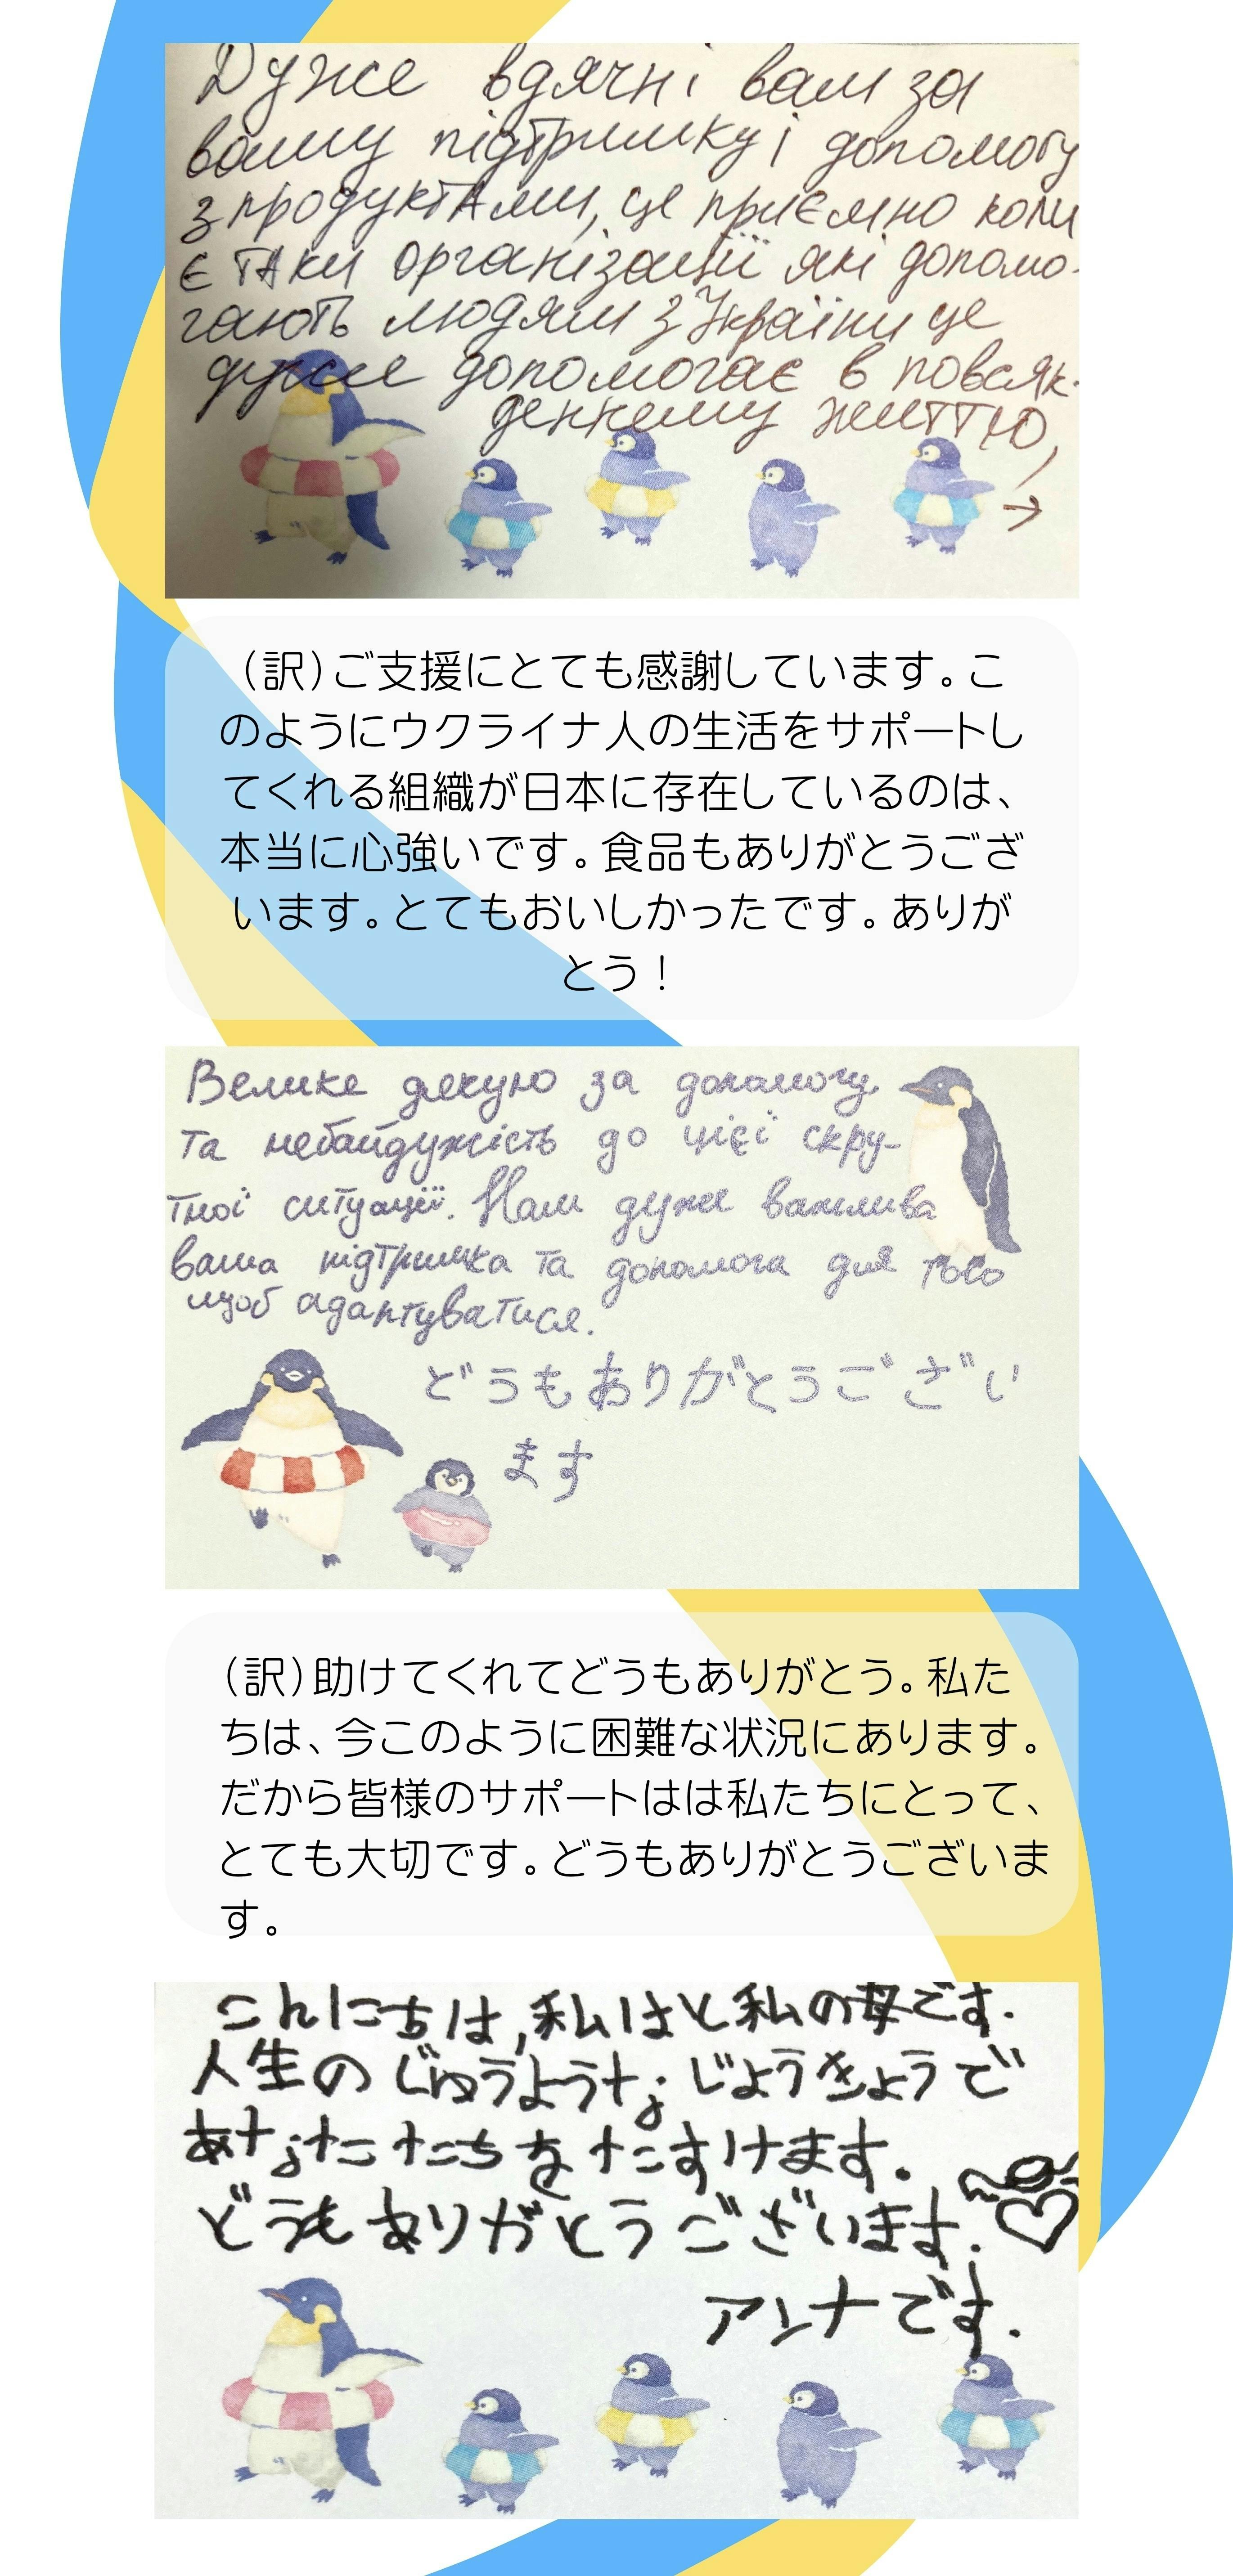 Дуже вдячні вам за
вашу підтримку і допомогу
з продуктАми, це приємно коли
є тАки організації які допомо-
гають людям з України це
дуже допомогає в повсяк-
денкему життю,
→
（訳）ご支援にとても感謝しています。こ
のようにウクライナ人の生活をサポートし
てくれる組織が日本に存在しているのは、
本当に心強いです。食品もありがとうござ
います。とてもおいしかったです。ありが
とう！
Велике дякую за допомогу
та небайдужість до цієї скру-
тної ситуації. Нам дуже важлива
ваша підтримка та допомога для того
щоб адаптуватися.
どうもありがとうござい
ます
（訳）助けてくれてどうもありがとう。私た
ちは、今このように困難な状況にあります。
だから皆様のサポートはは私たちにとって、
とても大切です。どうもありがとうございま
す。
こんにちは,私はと私の母です.
人生のじゅうような じょうきょうで
あなたたちをたすけます.
どうもありがとうございます.
アンナです.